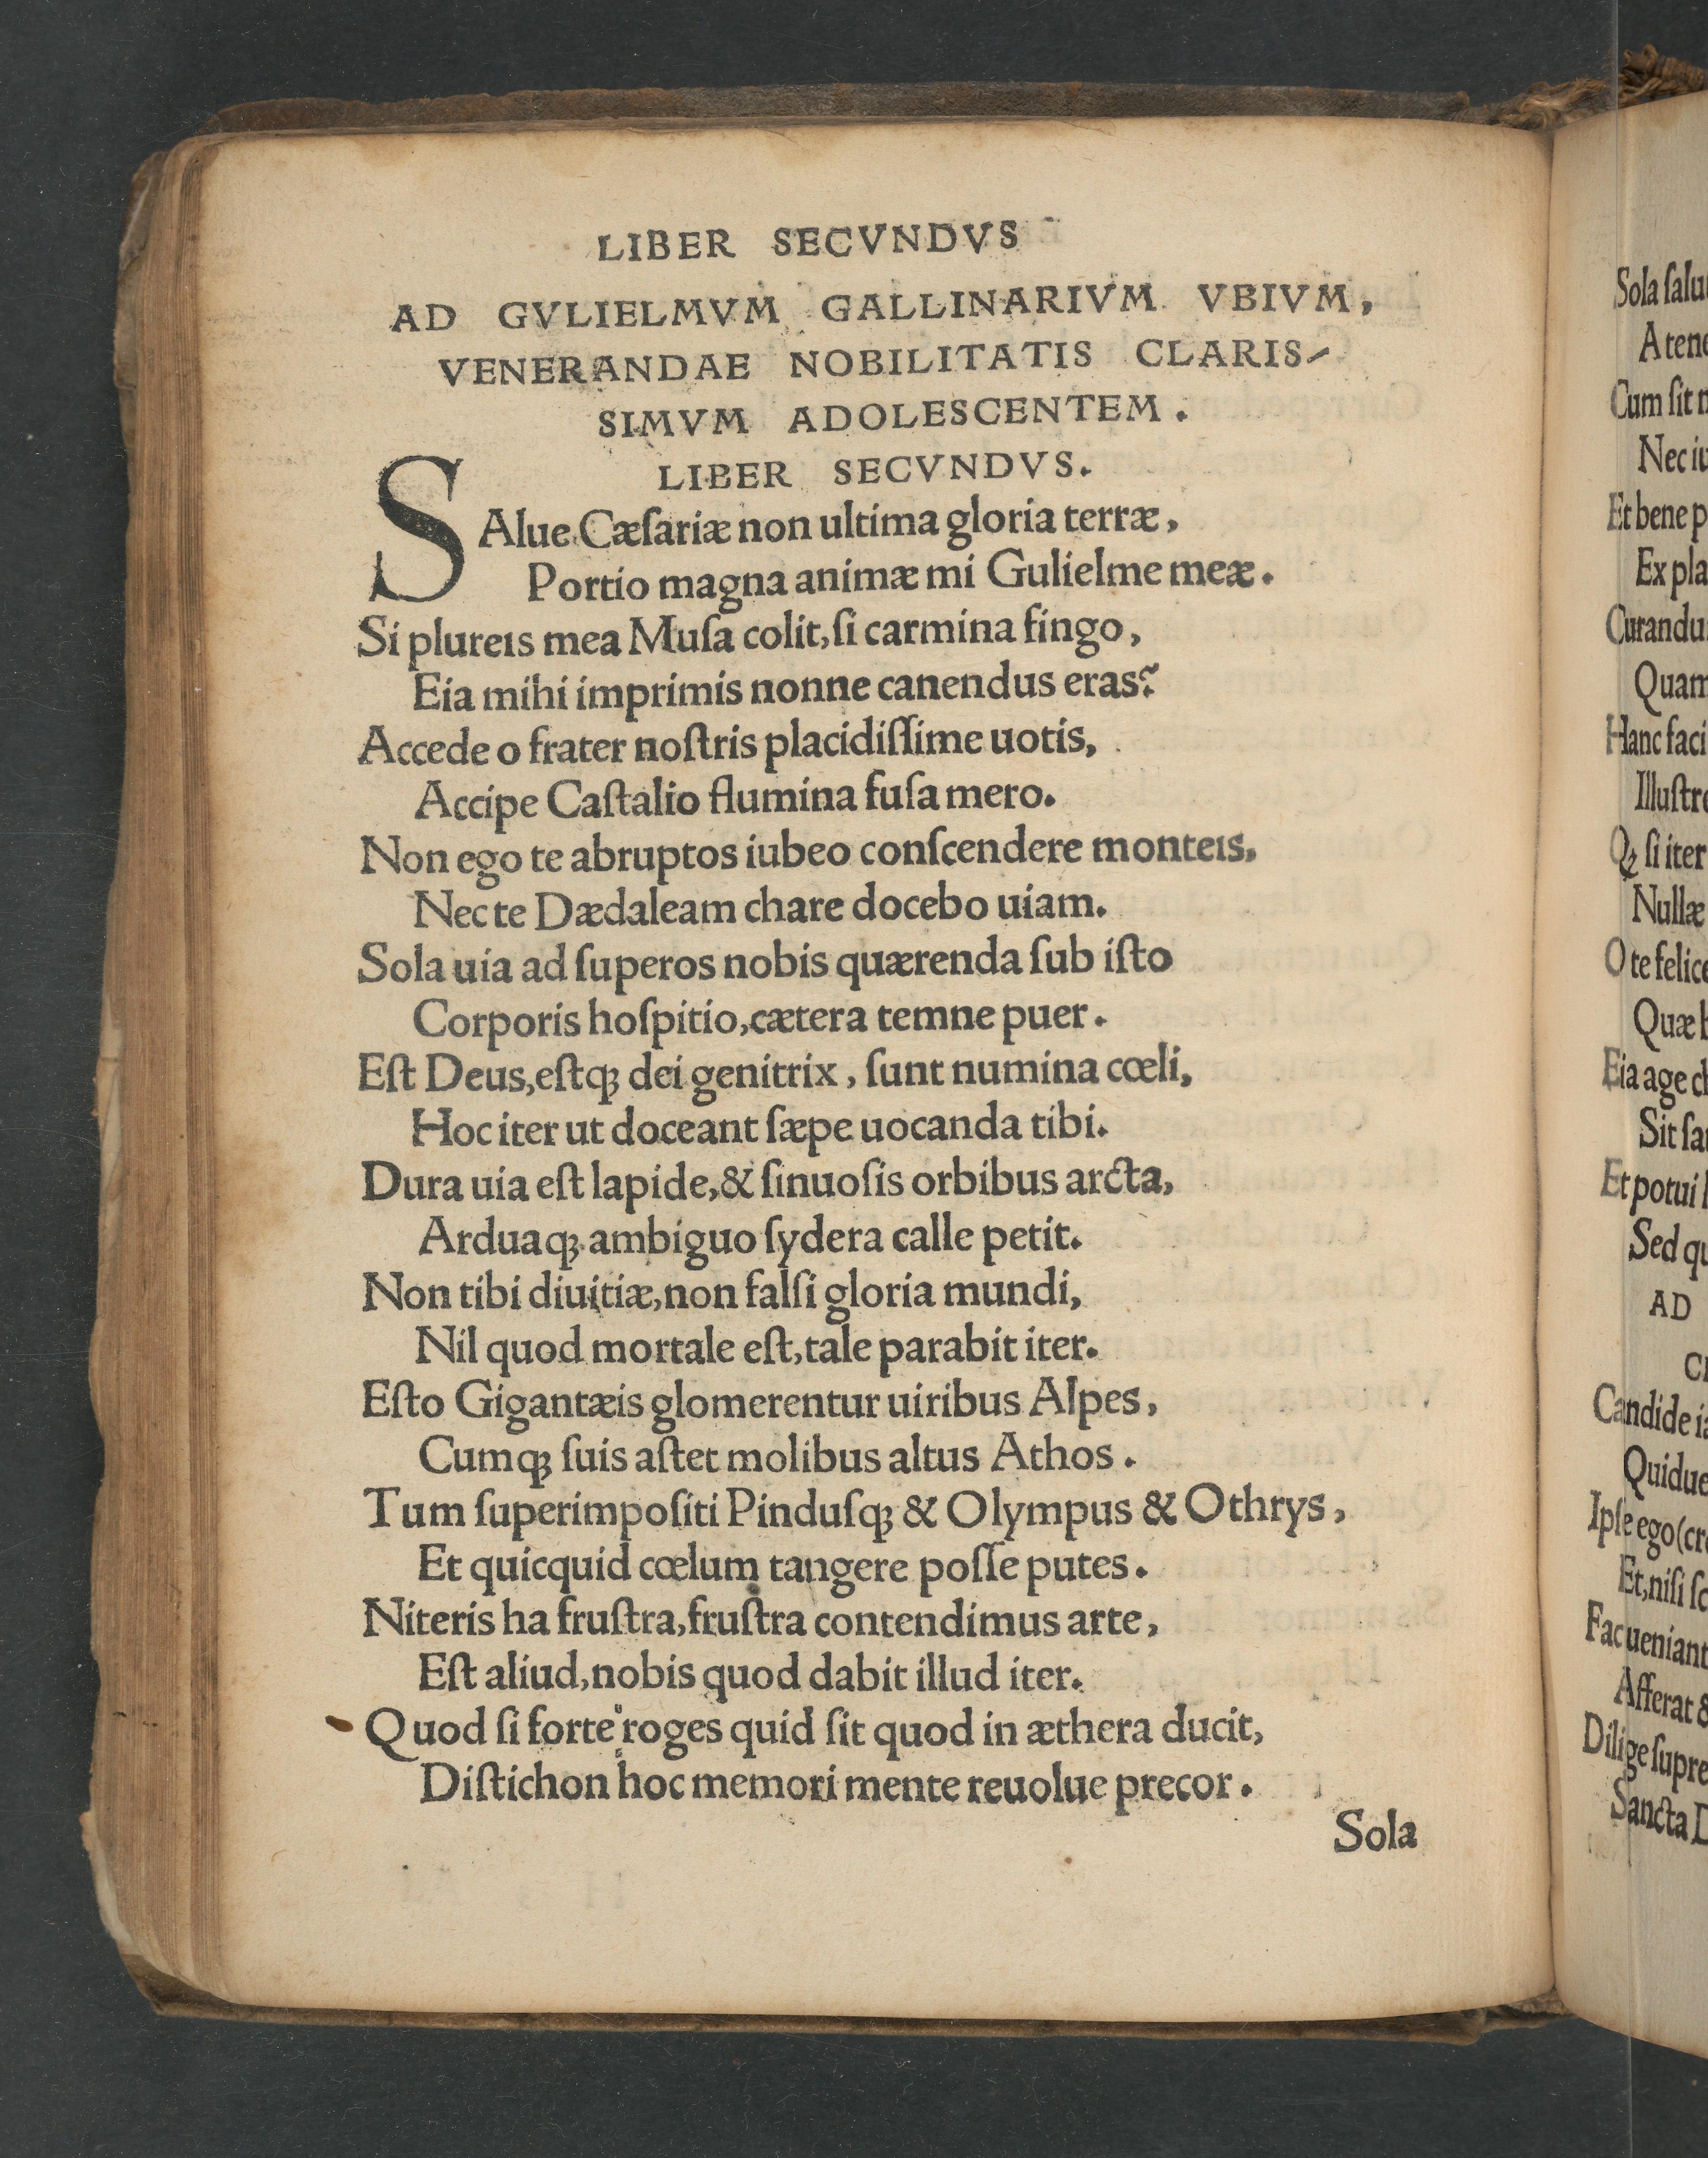 LIBER SECVNDVS
AD GVLIELMVM GALLINARIVM VBIVM,
VENERANDAE NOBILITATIS CLARIS-
SIMVM ADOLESCENTEM.
LIBER SECVNDVS.
SAlue Cæſariæ non ultima gloria terræ,
Portio magna animæ mi Gulielme meæ.
Si plureis mea Muſa colit, ſi carmina fingo,
Eia mihi imprimis nonne canendus eras?
Accede o frater noſtris placidiſſime uotis,
Accipe Caſtalio flumina fuſa mero.
Non ego te abruptos iubeo conſcendere monteis,
Nec te Dædaleam chare docebo uiam.
Sola uia ad ſuperos nobis quærenda ſub iſto
Corporis hoſpitio, cætera temne puer.
Eſt Deus, eſtqꝫ dei genitrix, ſunt numina cœli,
Hoc iter ut doceant ſæpe uocanda tibi.
Dura uia eſt lapide, & ſinuoſis orbibus arcta,
Arduaqꝫ ambiguo ſydera calle petit.
Non tibi diuitiæ, non falſi gloria mundi,
Nil quod mortale eſt, tale parabit iter.
Eſto Gigantæis glomerentur uiribus Alpes,
Cumqꝫ ſuis aſtet molibus altus Athos.
Tum ſuperimpoſiti Pinduſqꝫ & Olympus & Othrys,
Et quicquid cœlum tangere poſſe putes.
Niteris ha fruſtra, fruſtra contendimus arte,
Eſt aliud, nobis quod dabit illud iter.
Quod ſi forte roges quid ſit quod in æthera ducit,
Diſtichon hoc memori mente reuolue precor.
Sola
Sola
A
Cum ſit
Nec
Et bene
Ex
Quam
Hanc
Qꝫ ſi iter
Nullæ
O te
Quæ
Eia age
Sit
Et potui
Sed
AD
Candide
Ipſe ego (
Et, niſi
Fac ueniant
Afferat
Dilige
Sancta